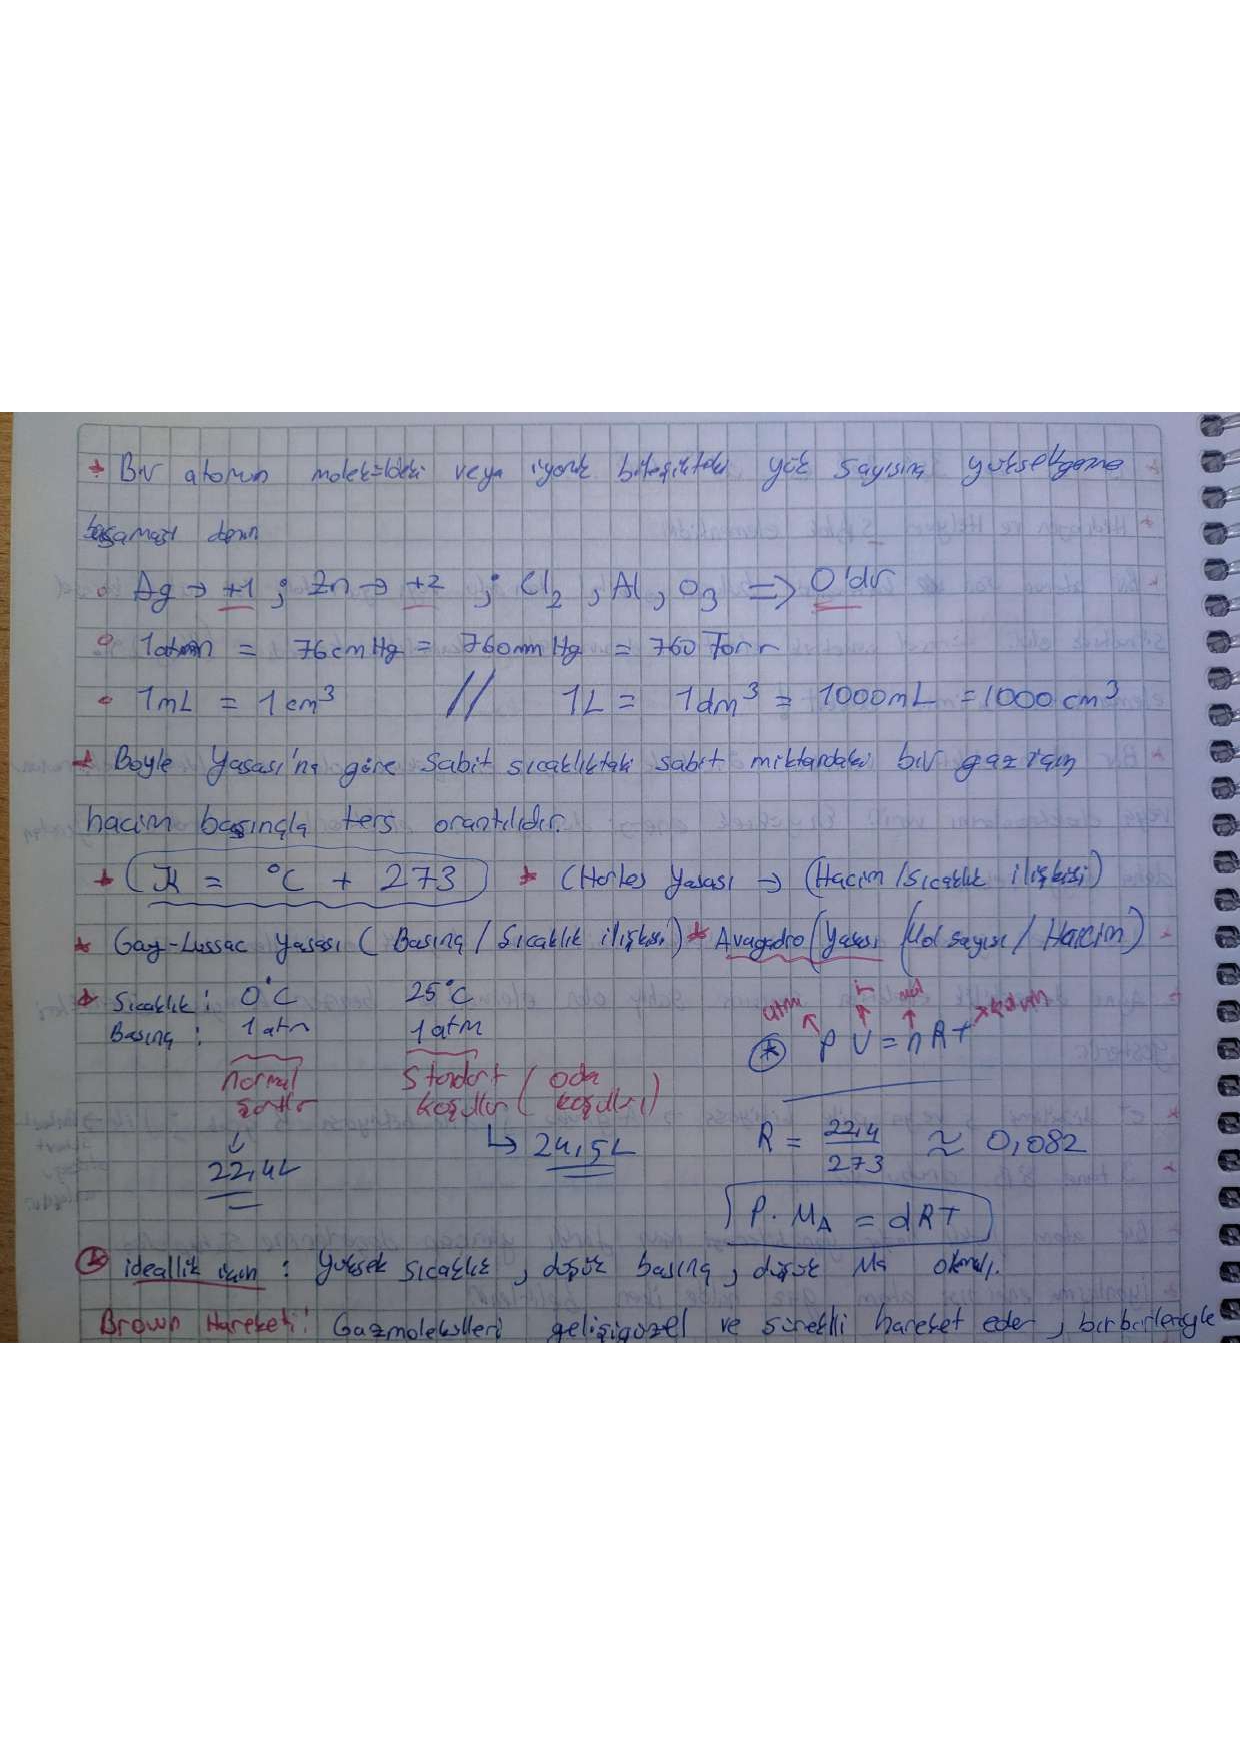 * Bir atomun moleküldeki veya iyonik bileşikteki yük sayısına yükseltgenme
basamağı denir
° Ag → +1 ; Zn → +2 ; Cl2 , Al , O3 => 0'dır
° 1 atm = 76 cm Hg = 760 mm Hg = 760 Torr
° 1 mL = 1 cm³ // 1L = 1 dm³ = 1000 mL = 1000 cm³
* Boyle Yasası'na göre sabit sıcaklıktaki sabit miktardaki bir gaz için
hacim basınçla ters orantılıdır.
* K = °C + 273 * Charles Yasası → (Hacim / Sıcaklık ilişkisi)
* Gay-Lussac Yasası (Basınç / Sıcaklık ilişkisi) * Avagadro Yasası (Mol sayısı / Hacim)
* Sıcaklık : 0°C 25°C
Basınç : 1 atm 1 atm
normal şartlar Standart koşullar (oda koşulları)
↓ 22,4L ↳ 24,5L
atm L mol kelvin
* P V = n R T
R = 22,4 / 273 ≈ 0,082
P . MA = dRT
* ideallik için : Yüksek sıcaklık , düşük basınç , düşük Ma olmalı.
Brown Hareketi : Gaz molekülleri gelişigüzel ve sürekli hareket eder , birbirleriyle